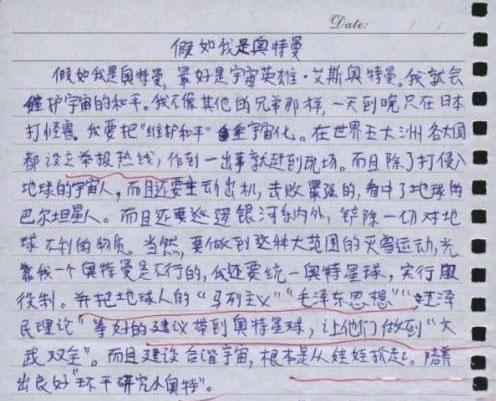 Date: / /
假如我是奥特曼
假如我是奥特曼,最好是宇宙英雄·艾斯奥特曼。我就会
维护宇宙的和平。我不像其他的兄弟那样,一天到晚只在日本
打怪兽。我要把"维护和平"宇宙化。在世界五大洲各大国
都设立举报热线,作到一出事就赶到现场。而且除了打侵入
地球的宇宙人,而且还要主动出机,击败最强的,看中了地球的
巴尔坦星人。而且还要巡逻银河系内外,铲除一切对地
球不利的物质。当然,要做到这种大范围的灭害运动,光
靠我一个奥特曼是不行的,我还要统一奥特星球,实行服
役制。并把地球人的"马列主义""毛泽东思想""泽
民理论"等好的建议带到奥特星球,让他们做到"文
武双全"。而且建设合谐宇宙,根本是从娃娃抓起。培养
出良好"环干研究小奥特"。